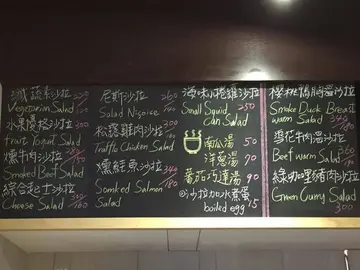 蔬素沙拉
Vegetarian Salad
水果優格沙拉 200
Fruit Yogurt Salad
燻牛肉沙拉
Smoked Beef Salad
綜合起士沙拉
Cheese Salad
尼斯沙拉
Salad Niçoise
松露雞肉沙拉
Truffle Chicken Salad
燻鮭魚沙拉 340
Somked Salmon 180
Salad
海味小卷雞沙拉 260
Small Squid
Can Salad
南瓜湯 50
洋蔥湯 70
蕃茄巧達湯 90
@沙拉加水煮蛋
boiled egg 15
櫻桃鴨胸溫沙拉
Smoke Duck Breast
warm Salad 340
雪花牛肉溫沙拉
Beef warm
Salad
綠咖哩豬肉沙拉
Green Curry Salad 300